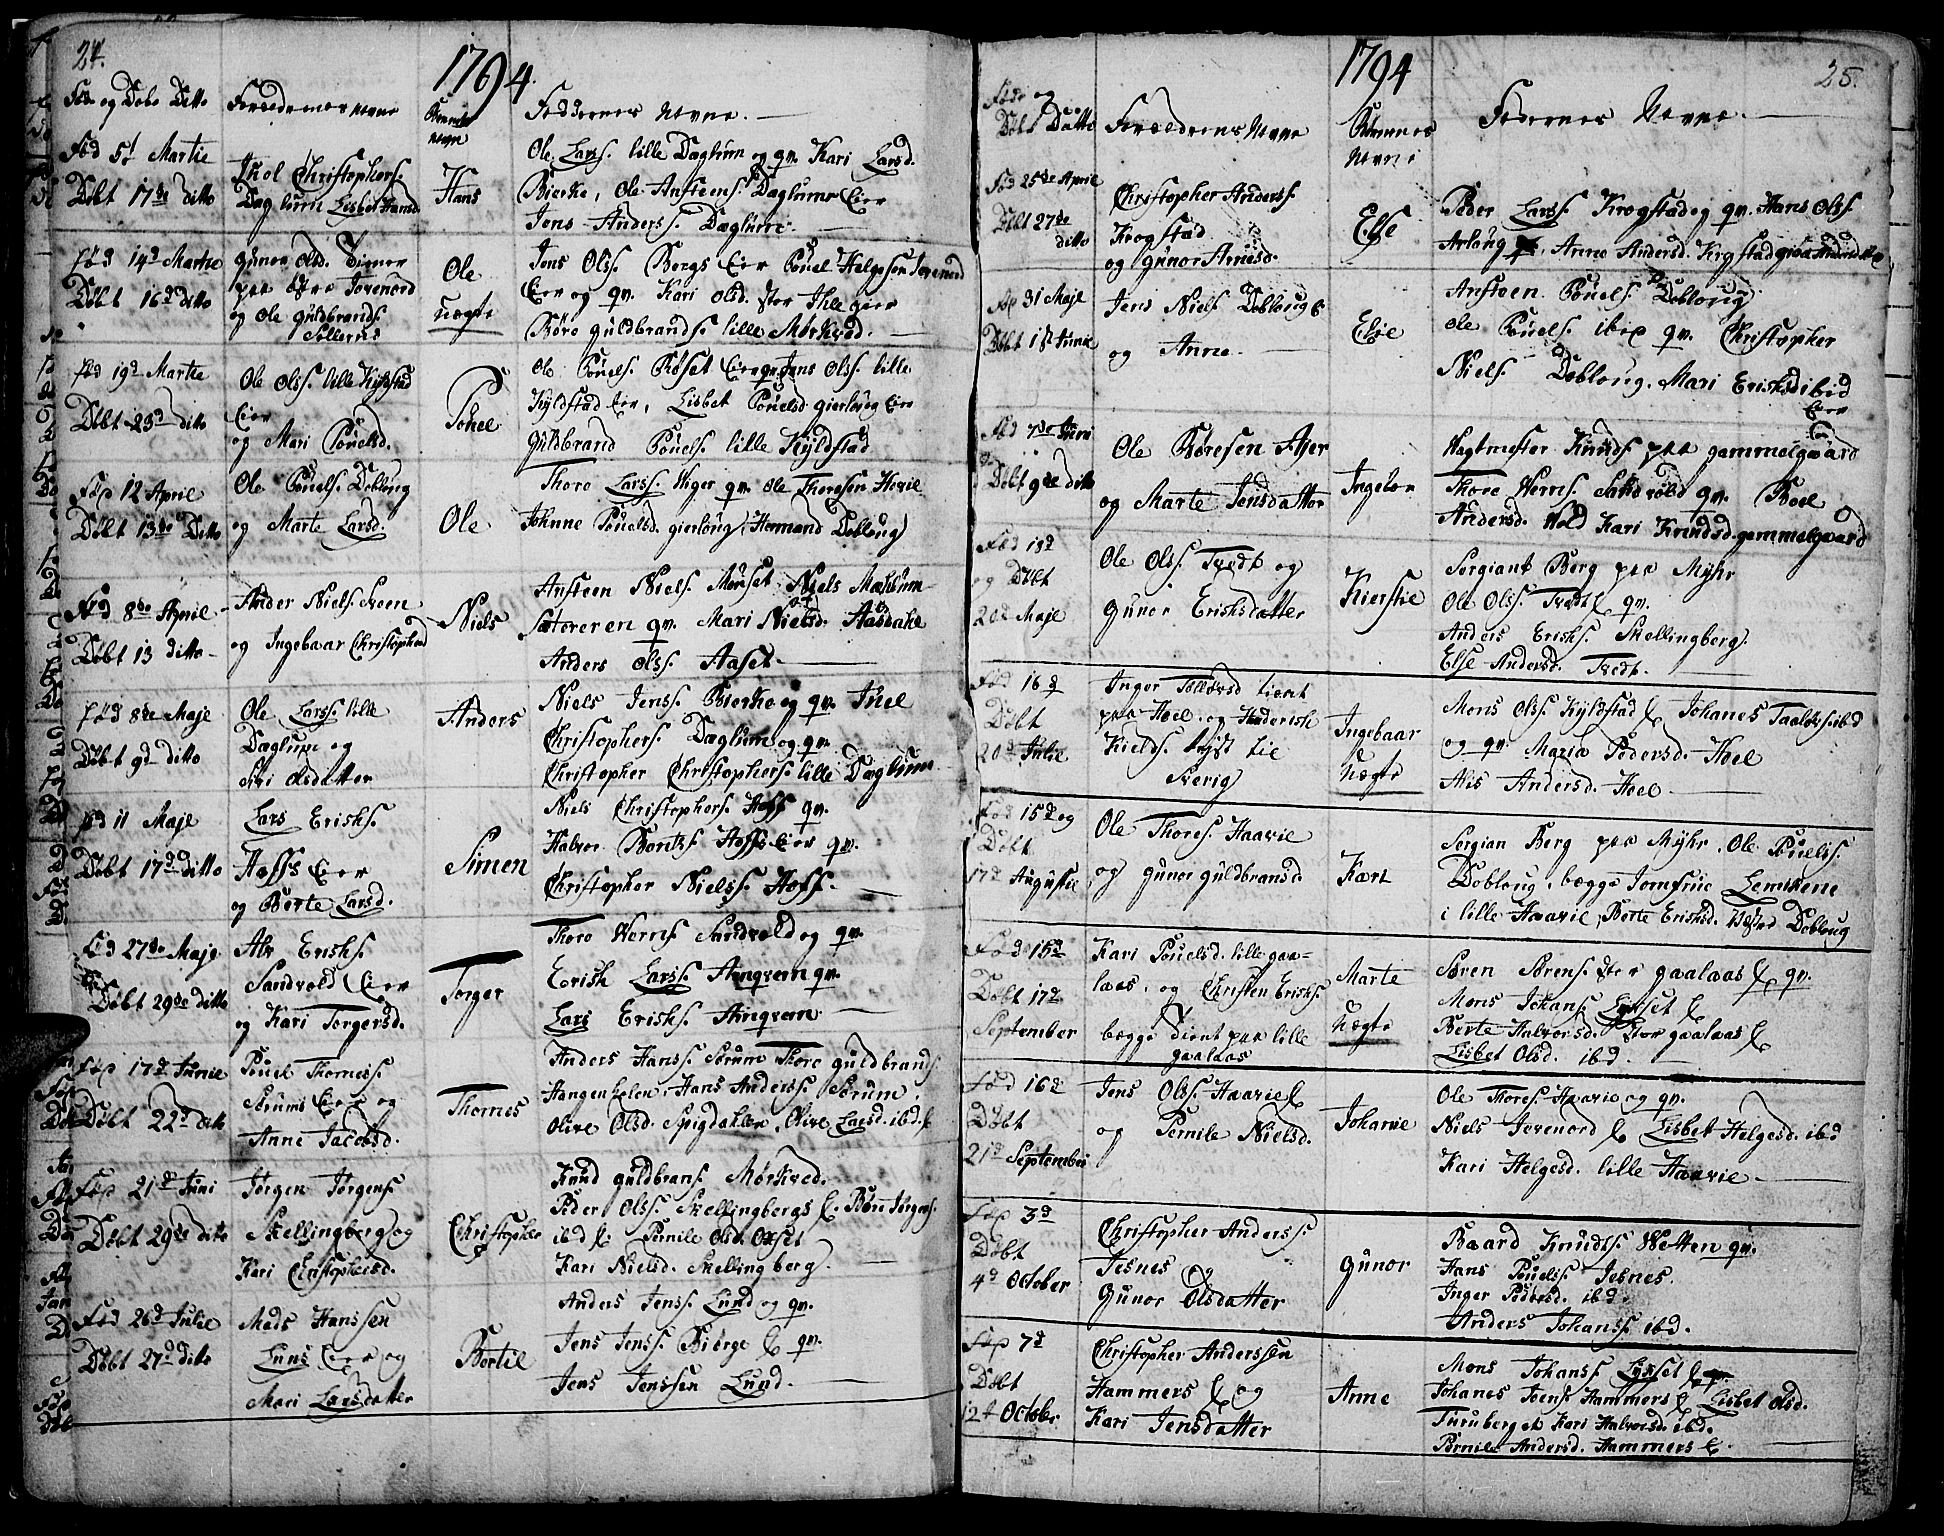 24.
1794.
Fød og Døbt Ditto
Forældrenes Nevne
Børnenes Nevne
Faddernes Nevne.
Fød 5t Martie
Døbt 17de ditto
Christophers.
Daglum Lisbet Hansd.
Hans
Ole Larss. lille Daglum og qv. Kari Larsd.
Bierke, Ole Ansteens. Daglums Eier
Jens Anderss. Daglum.
Fød 14d Martie
Døbt 16d ditto
Gunor Olsd.
paa Jevenord
og Ole Guldbrands.
Ole
Uægte
Jens Olss. Bergs Eier Pouel Helgesen Jevenord
Eier og qv. Kari Olsd. stor Ihle eier
Børe Guldbrands. lille Mørkved.
Fød 19d Martie
Døbt 23d ditto
Ole Olss. lille Kyldstad
Eier
og Mari Pouelsd.
Ole Pouels. Røset Eier qv. Jens Olss. lille
Kyldstad Eier, Lisbet Pouelsd. gierloug Eier
Guldbrand Pouels. lille Kyldstad
Fød 12 April
Døbt 13de Ditto
Ole Pouels. Dobloug
og Marte Larsd.
Ole
Thore Larss. qv. Ole Thoresen Hovie
Johnne Pouelsd. gierloug, Hermand Dobloug
Fød 8de April
Døbt 13 ditto
Ander Niels.
og Ingebaar Christophersd
Niels
Ansteen Niels. Niels
qv. Mari Nielsd. Aasdahl
Anders Olss. Aaset.
Fød 8de Maje
Døbt 9d ditto
Ole Larss. lille
Daglum og
Kari Olsdatter
Anders
Niels Jenss. Bierke og qv. Juel
Christophers. Daglum og qv.
Christopher Christophers. lille Daglum
Fød 11 Maje
Døbt 17d ditto
Lars Eriks.
Hoffs Eier
og Berte Larsd.
Simen
Niels Christophers. Hoff qv.
Halvor Hoffs Eier qv.
Christopher Nielss. Hoff.
Fød 27de Maje
Døbt 29de ditto
Eriks.
Sandvold Eier
og Kari Torgersd.
Torger
Thore Sandvold og qv.
Erik Larss. Arnqvern qv.
Lars Eriks. Arnqvern
Fød 17d Junie
Døbt 22d dito
Pouel Thomess.
Sørums Eier og
Anne Jacobsd.
Thomes
Anders Hanss. Sørum Thore guldbrands.
Hans Anderss. Sørum,
Olive Olsd. Spigdahlen, Olive Larsd. ibd.
Fød 21d Juni
Døbt 29de dito
Jørgen Jørgens.
Skellingberg og
Kari Christophersd.
Christopher
Knud guldbrans. Mørkved.
Peder Olss. Skellingbergs E. Børe Jørgens.
ibd E. Pernile Olsd.
Kari Nielsd. Skellingberg.
Fød 26d Julie
Døbt 27d dito
Mads Hanssen
Luns Eier og
Mari Larsdatter
Bertil
Anders Jenss. Lund og qv.
Jens Jenss. E qv.
Jens Jenssen Lund.
25.
1794
Fød og
Døbt Datto
Forældrens Nevne
Børnenes
Nevne
Federnes Nevne.
Fød 25de Aprile
Døbt 27de
ditto
Christopher Anderss.
Krogstad
og Gunor Arnesd.
Else
Peder Larss. Krogstad og qv. Hans Olss.
Anne Andersd. Krogstad
31 Maje
Døbt 1st Junie
Jens Niels. Dobloug E
og Anne
Else
Ansteen Pouels. Dobloug
Ole Pouels. ibd qv. Christopher
Niels. Dobloug. Mari Eriksd ibid
Eier
Fød 7de Juni
Døbt 9de ditto
Ole Børesen Ajer
og Marte Jensdatter
Ingebor
Vagtmester Knuds. paa gammelgaard
Thore Sandvold qv. Boel
Andersd. Kari Knudsd. gammelgaard
Fød 13d
og Døbt
20d Maje
Ole Olss. Tvedt og
Gunor Eriksdatter
Kierstie
Sergiant Berg paa Myhr
Ole Olss. Tvedt E qv.
Anders Eriks. Skellingberg.
Else Andersd. Tvedt.
Fød 16d
Døbt
20d Julie
Inger tient
paa Hoel og Anderish
Kields. tie
Sverig
Ingebaar
Uægte
Mons Olss. Kyldstad E Johanes ibd
og qv. Maria Pedersd. Hoel
Andersd. Hoel.
Fød 15d og
Døbt
17d Augustie
Ole Thores. Haavie
og Gunor guldbransd
Kari
Sergian Berg paa Myhr. Ole Pouelss.
Dobloug, begge Jomfrue
i lille Haavie, Berte Eriksd. Dobloug
Fød 15d
Døbt 17d
September
Kari Pouelsd. lille gaa-
laas, og Christen Eriks.
begge tient paa lille
gaalaas
Marte
Uægte
Søren Sørens. gaalaas E qv.
Mons Johans. E
Berte Halvorsd. stor gaalaas E
Lisbet Olsd. ibd.
Fød 16d
Døbt
21d September
Jens Olss. Haavie E
og Pernile Nielsd.
Johanne
Ole Thores. Haavie og qv.
Niels Jevenord E Lisbet Helgesd. ibd
Kari Helgesd. lille Haavie
Fød 3d
Døbt
4d October
Christopher Anderss.
Jesnes
og
Gunor Olsdatter
Gunor
Baard Knudts. Wetten qv.
Hans Pouelss. Jesnes.
Inger Pedersd. ibd.
Anders Johanss. ibd.
Fød 7d
Døbt
12t October
Christopher Anderssen
Hammers E og
Kari Jensdatter
Anne
Mons Johanss. E
Johanes Hammers E Lisbet Olsd.
Kari Halvorsd. ibd.
Pernile Andersd. Hammers E.